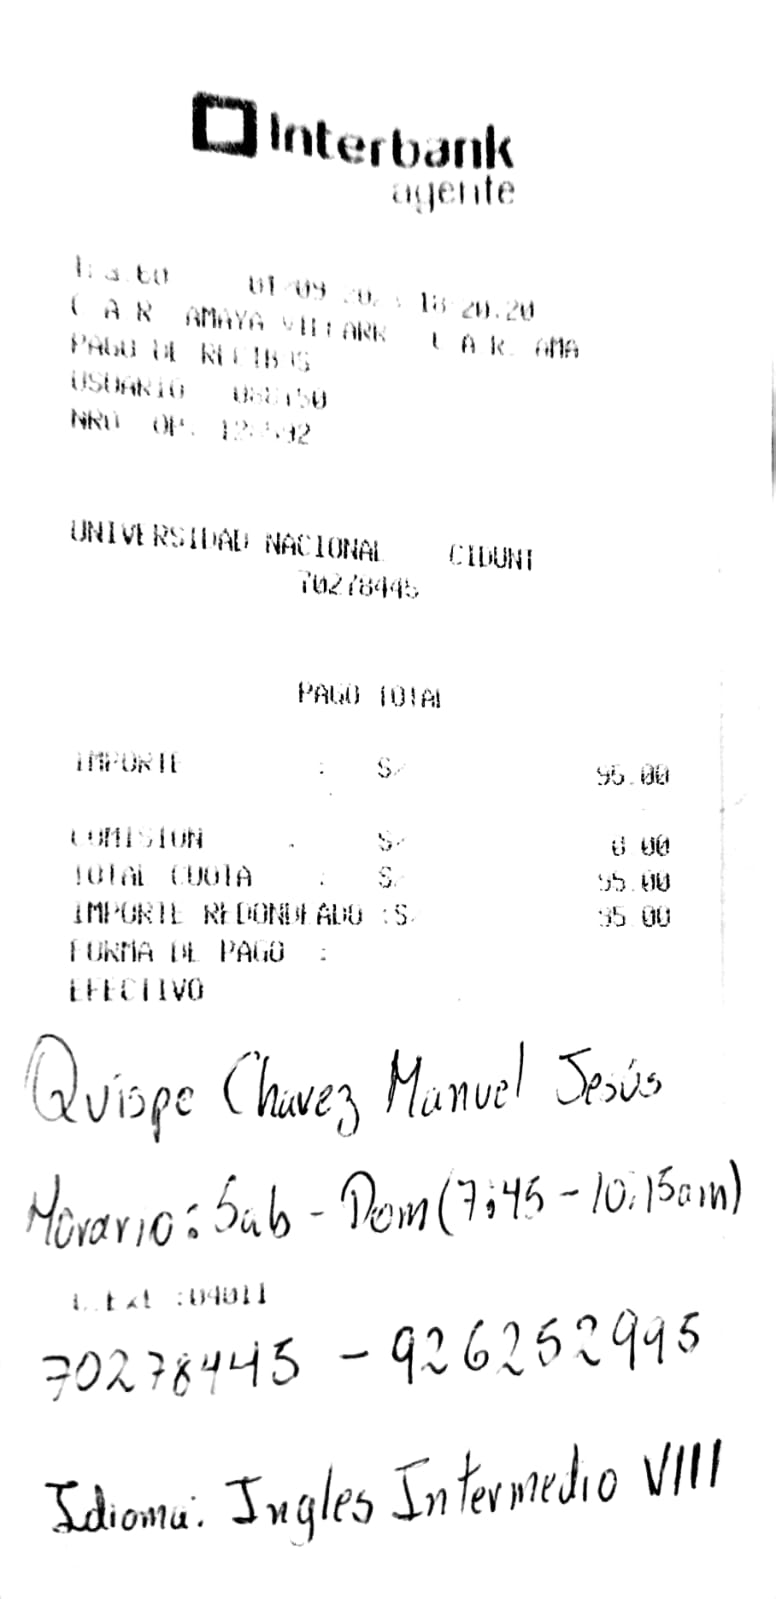 Interbank
agente
C.A.R. AMAYA C.A.R. AMA
PAGO DE RECIBOS
USUARIO
NRO. OP.
UNIVERSIDAD NACIONAL CIDUNI
70278445
PAGO TOTAL
IMPORTE : S/ 95.00
COMISION : S/ 0.00
TOTAL CUOTA : S/ 95.00
IMPORTE REDONDEADO :S/ 95.00
FORMA DE PAGO :
EFECTIVO
Quispe Chavez Manuel Jesús
Horario: Sab - Dom (7:45 - 10:15am)
:04011
70278445 - 926252995
Idioma: Ingles Intermedio VIII